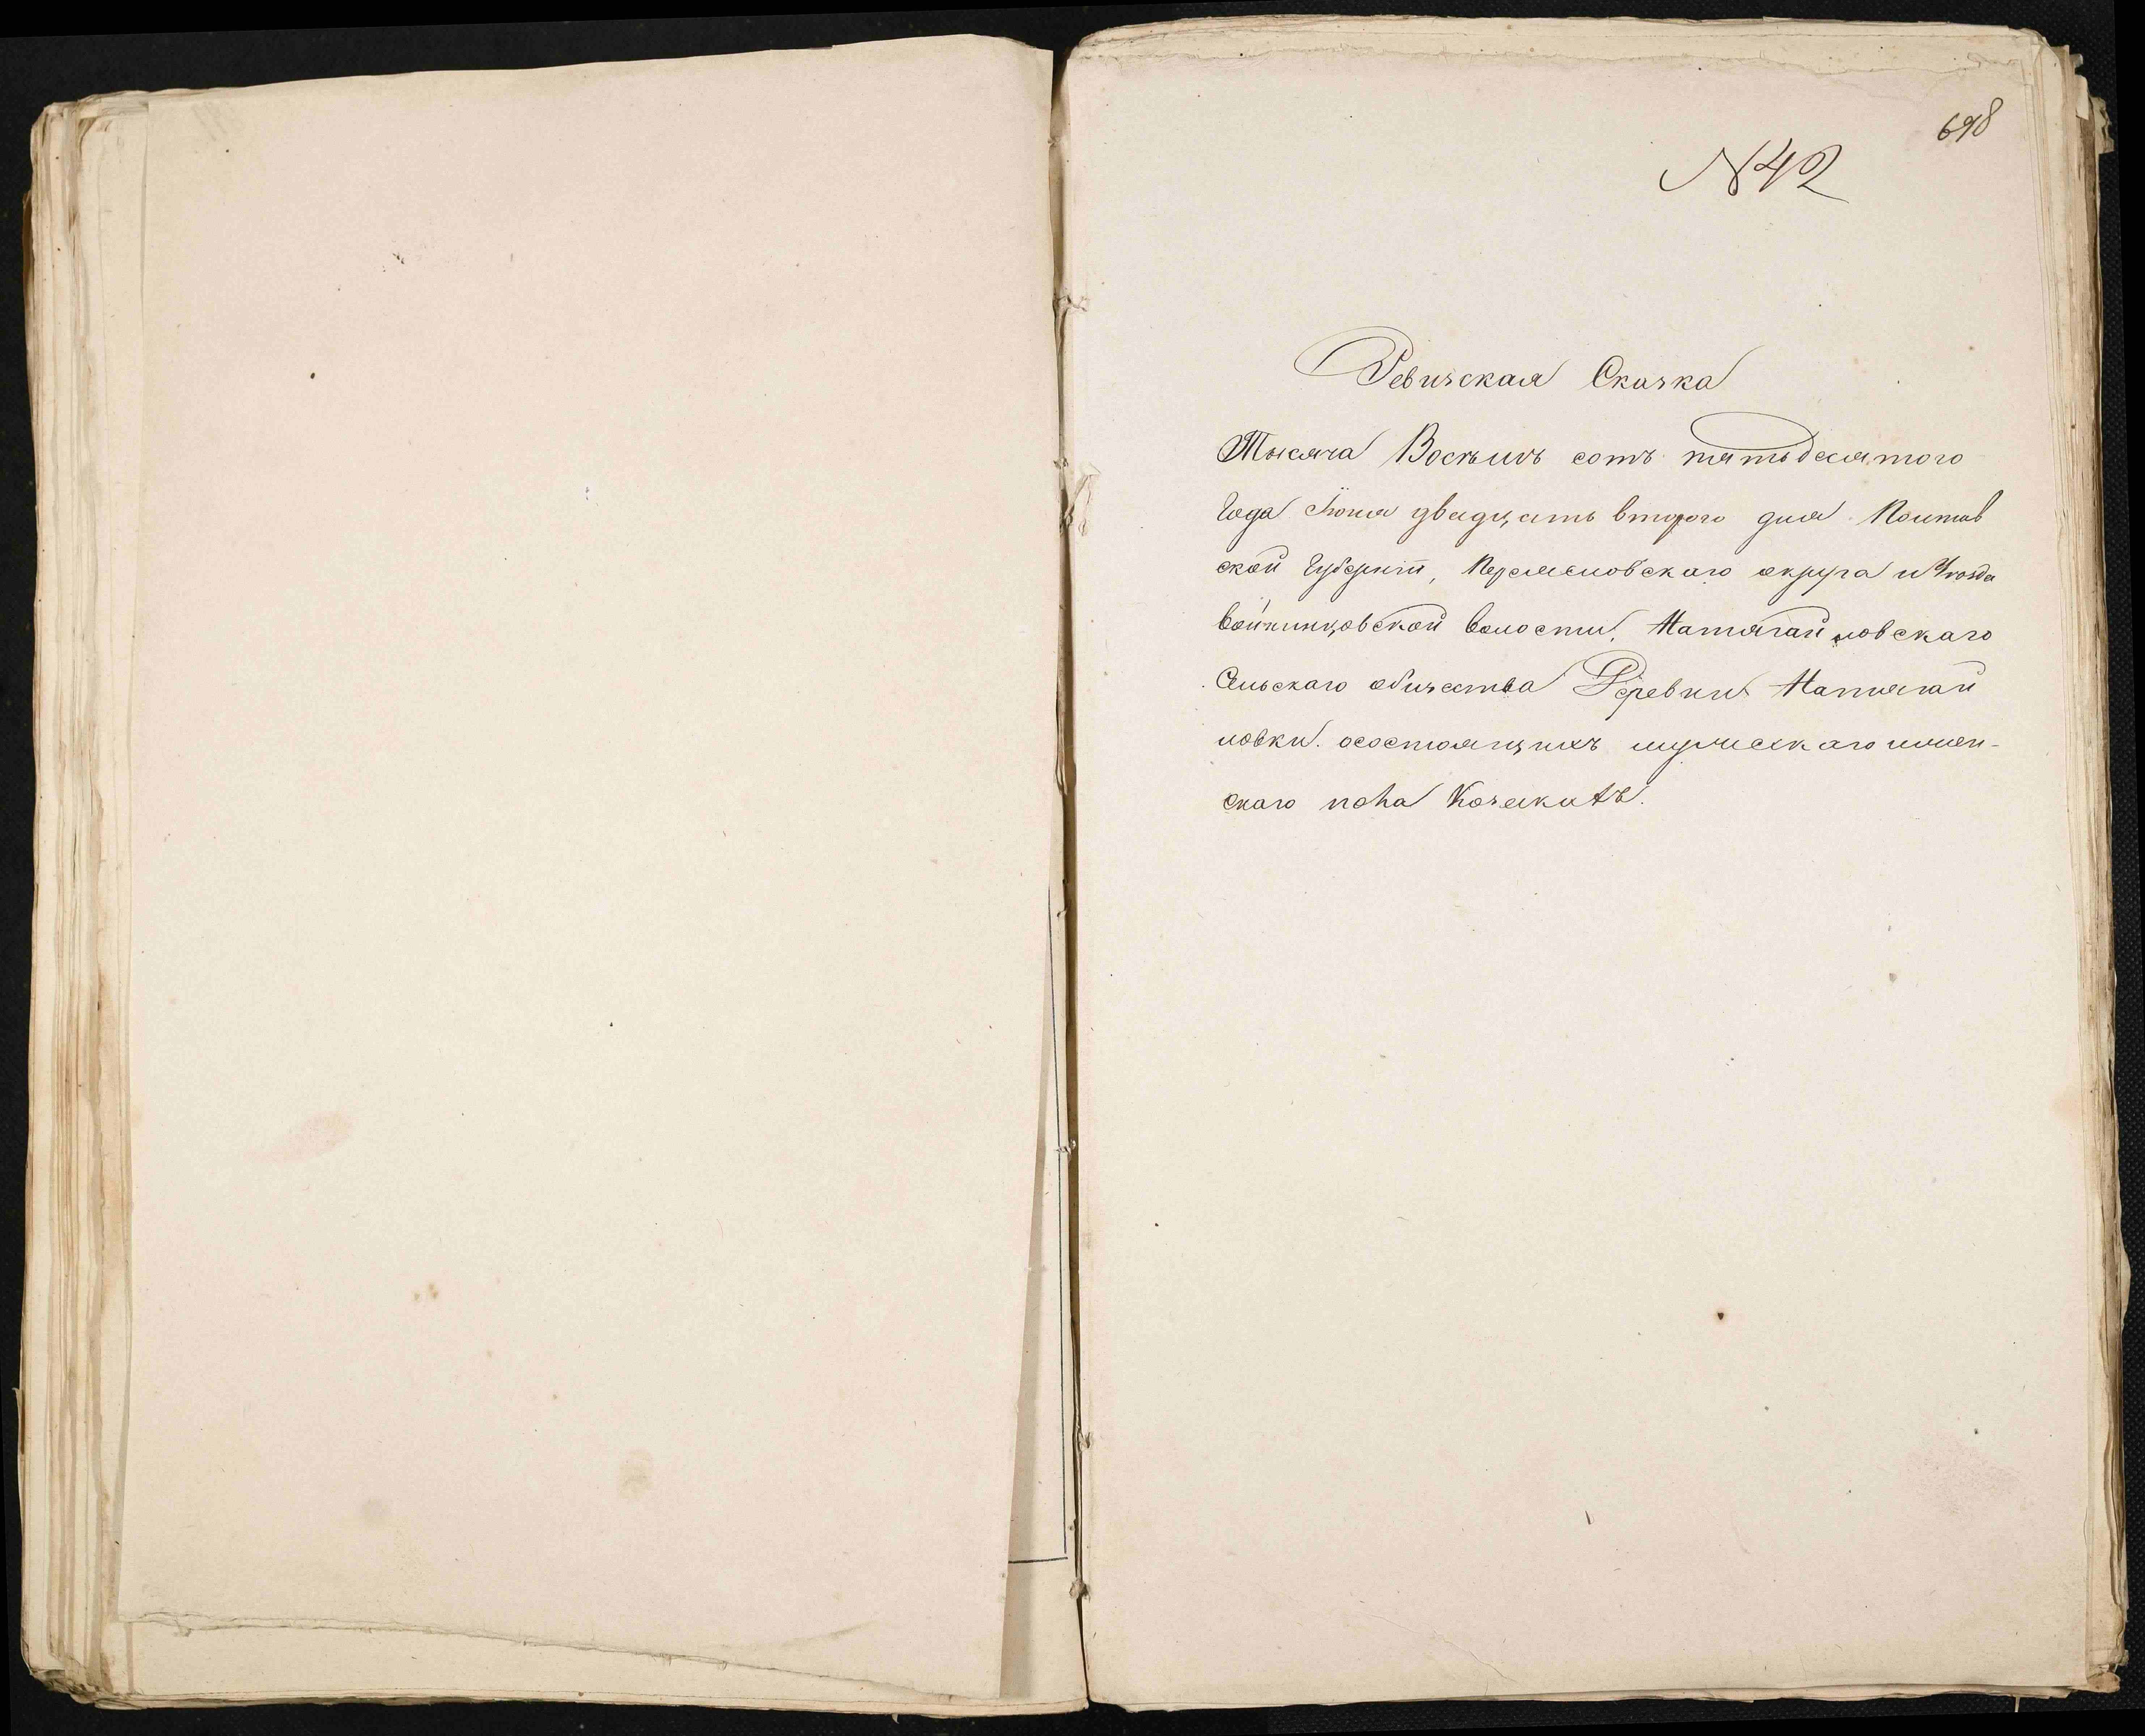 698
N 42
Ревизская Сказка
Тысяча Восемь сотъ пятьдесятого
Года Іюня двадцать второго дня Полтав
ской Губерніи, Кременовскаго округа и Уѣзда
Войнинцовской волости, Матвягайловскаго
Сельскаго общества Деревни Матвягай
ловки. о состоящихъ мужескаго и жен-
скаго пола Козакахъ.